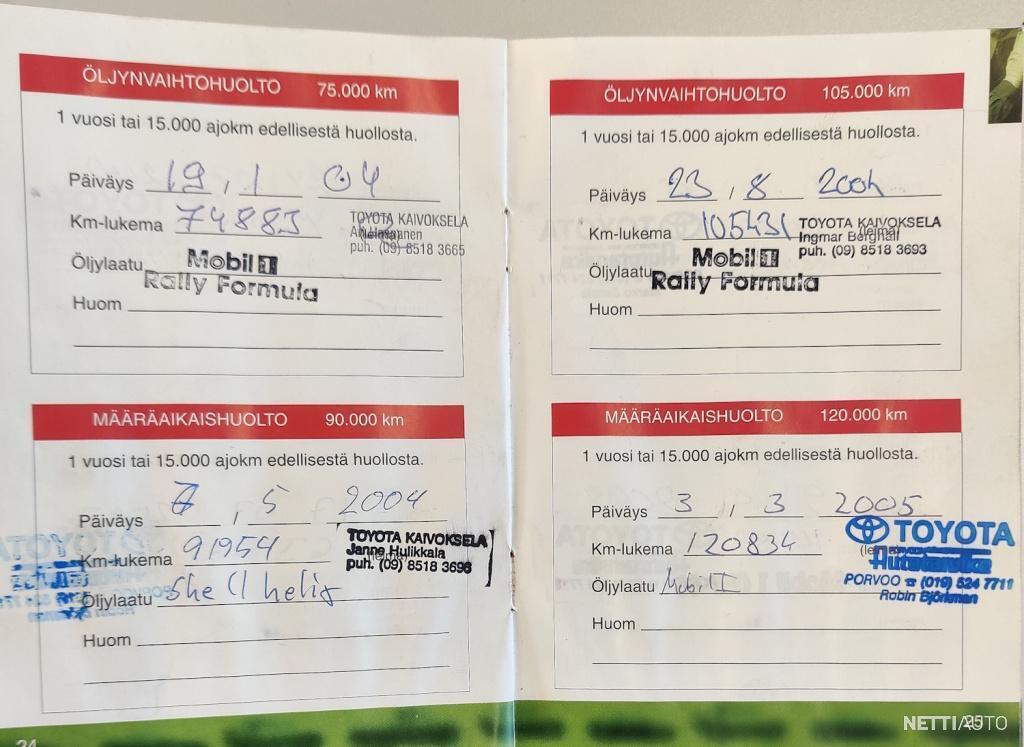 ÖLJYNVAIHTOHUOLTO 75.000 km
1 vuosi tai 15.000 ajokm edellisestä huollosta.
Päiväys 19 , 1 04
Km-lukema 74883
TOYOTA KAIVOKSELA
puh. (09) 8518 3665
Öljylaatu Mobil 1
Rally Formula
Huom
MÄÄRÄAIKAISHUOLTO 90.000 km
1 vuosi tai 15.000 ajokm edellisestä huollosta.
Päiväys 7 , 5 2004
Km-lukema 91954
TOYOTA KAIVOKSELA
Janne Hulikkala
puh. (09) 8518 3693
Öljylaatu Shell helix
Huom
24
ÖLJYNVAIHTOHUOLTO 105.000 km
1 vuosi tai 15.000 ajokm edellisestä huollosta.
Päiväys 23 , 8 2004
Km-lukema 105431
TOYOTA KAIVOKSELA
Ingmar Berghäll
puh. (09) 8518 3693
Öljylaatu Mobil 1
Rally Formula
Huom
MÄÄRÄAIKAISHUOLTO 120.000 km
1 vuosi tai 15.000 ajokm edellisestä huollosta.
Päiväys 3 , 3 2005
Km-lukema 120834
TOYOTA
PORVOO ☎ (019) 524 7711
Robin Björkman
Öljylaatu Mobil 1
Huom
25
NETTIAUTO